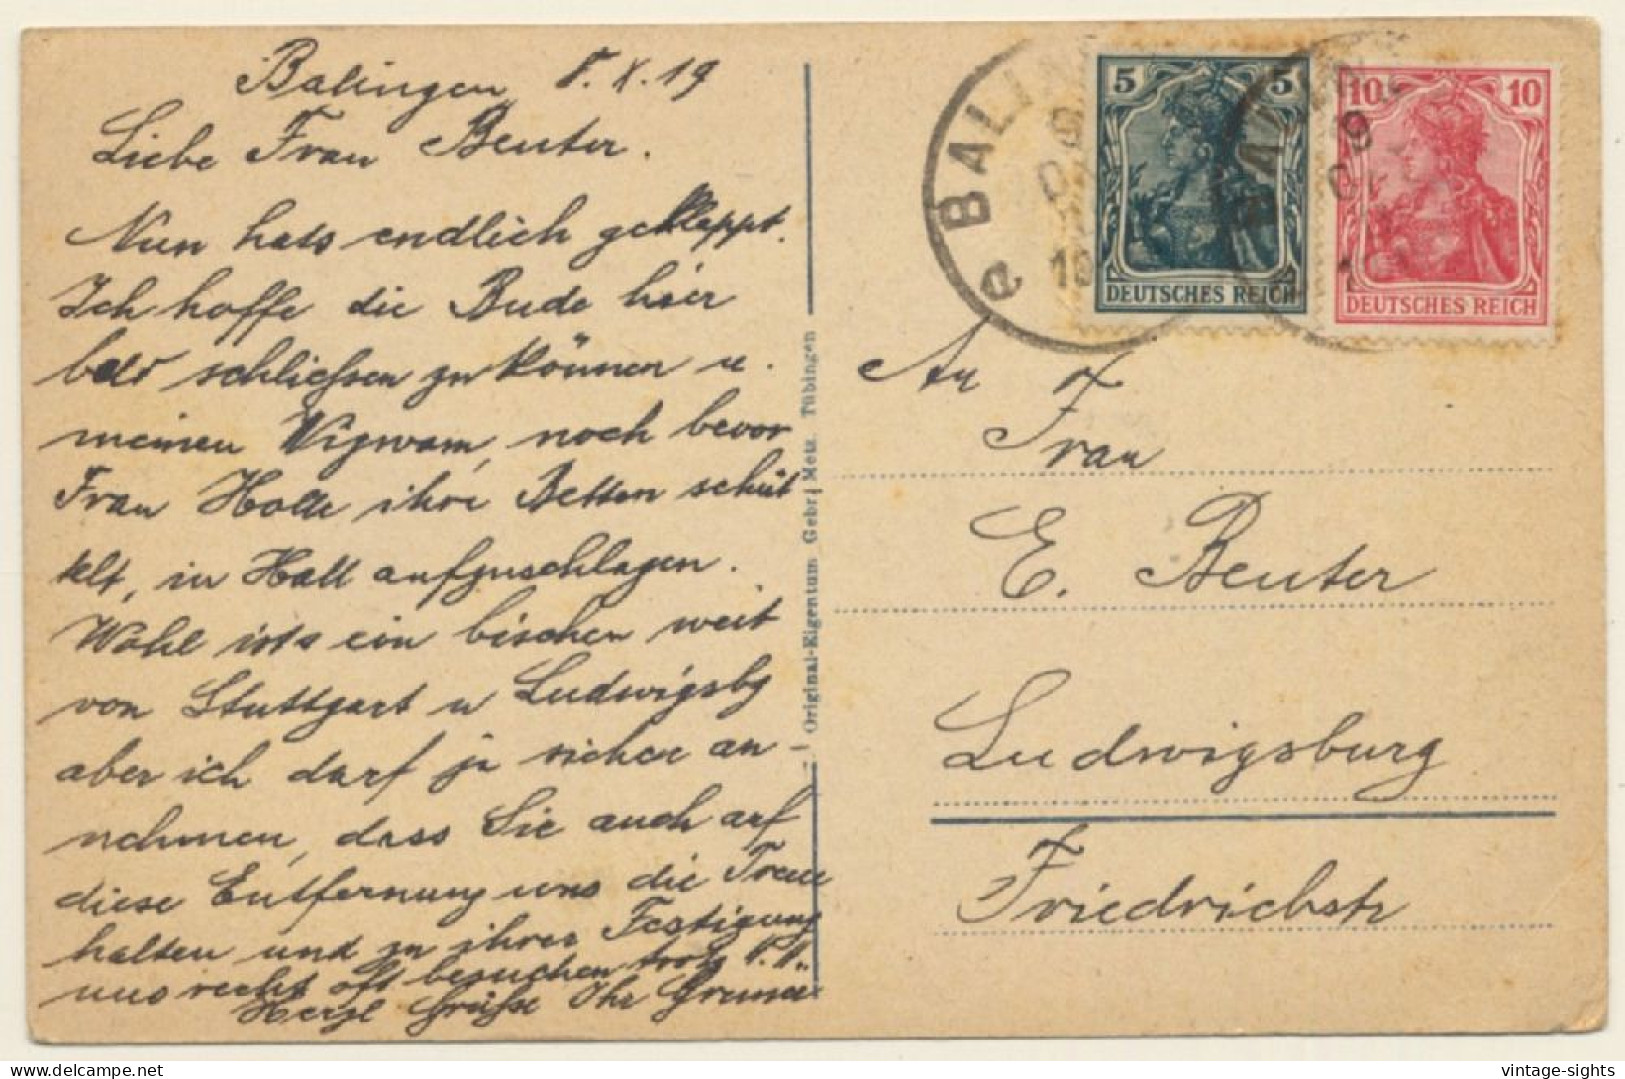 Balingen 8. X. 19
Liebe Frau Beuter.
Nun hats endlich geklappt.
Ich hoffe die Bude hier
bald schliessen zu können u.
meinen Wigwam, noch bevor
Frau Holle ihre Betten schüt
telt, in Hall aufzuschlagen.
Wohl ists ein bischen weit
von Stuttgart u Ludwigsbg
aber ich darf ja sicher an-
nehmen, dass Sie auch auf
diese Entfernung uns die Treue
halten und zu ihrer Festigung
uns recht oft besuchen trotz
Herzl Grüsse Ihr
Original-Eigentum Gebr. Metz. Tübingen
BALIN
e
5 5
DEUTSCHES REICH
10 10
DEUTSCHES REICH
An
Frau
E. Beuter
Ludwigsburg
Friedrichstr
www.delcampe.net
vintage-sights